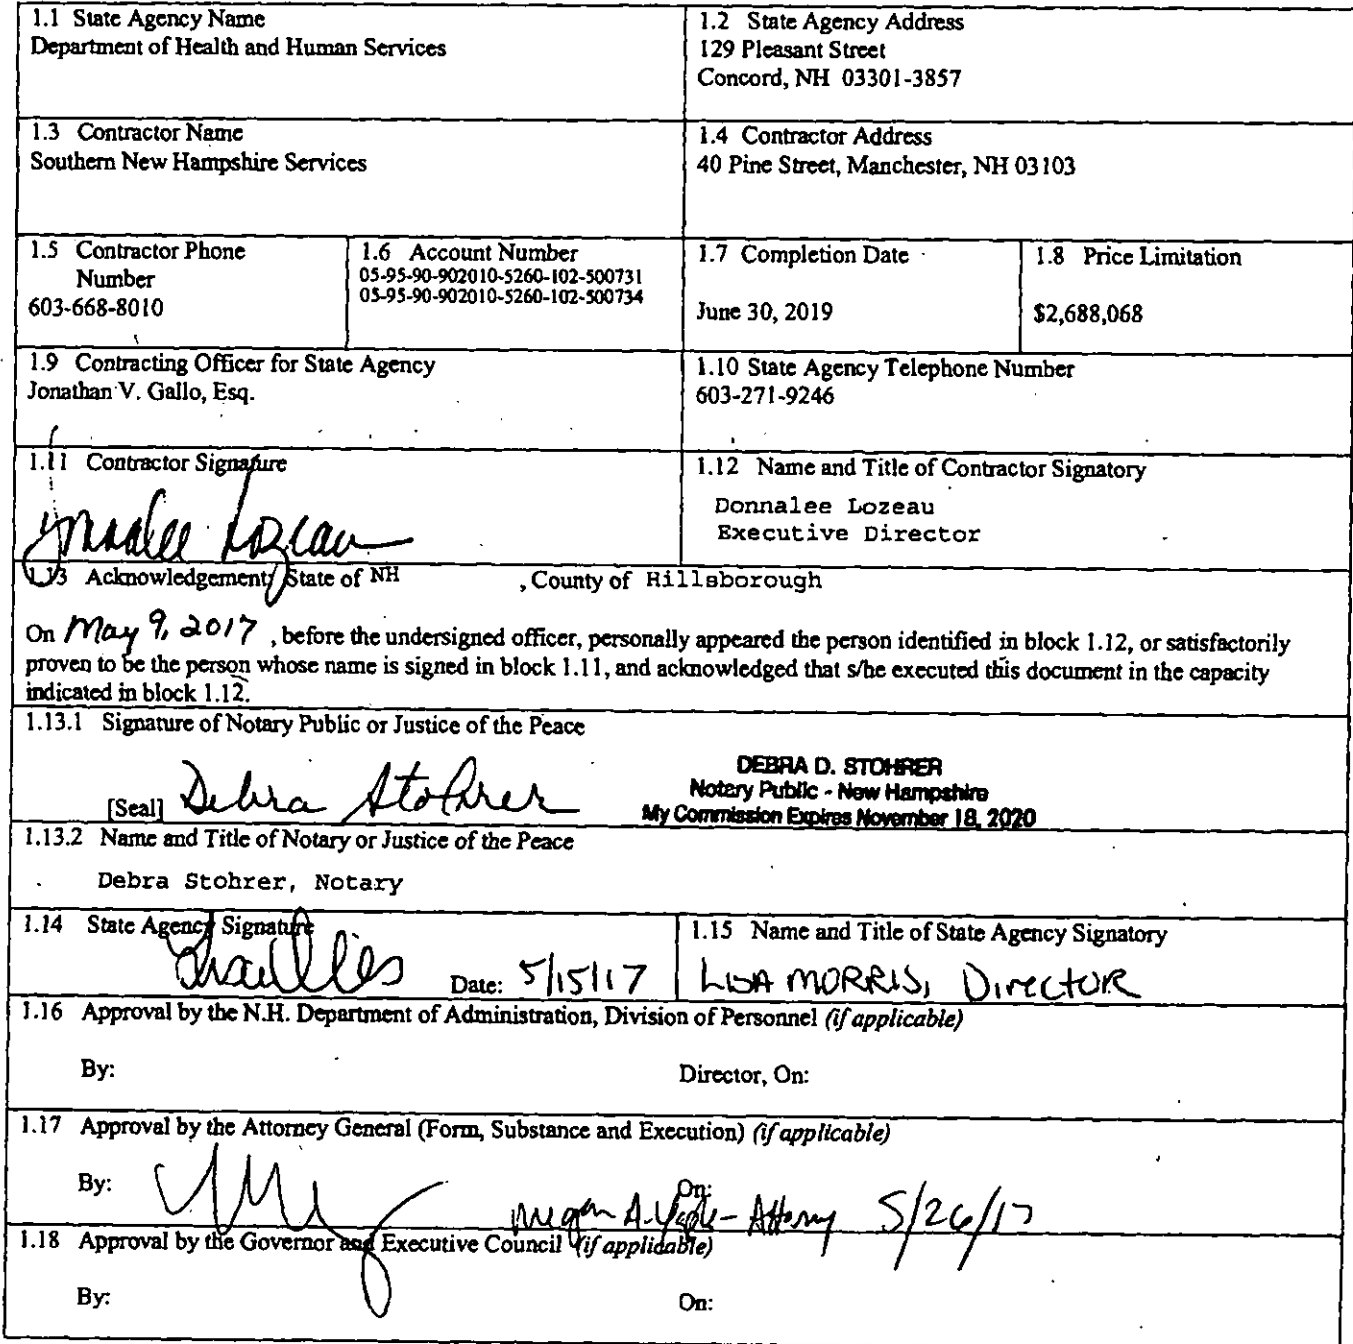 1.1 State Agency Name
Department of Health and Human Services
1.2 State Agency Address
129 Pleasant Street
Concord, NH 03301-3857
1.3 Contractor Name
Southern New Hampshire Services
1.4 Contractor Address
40 Pine Street, Manchester, NH 03103
1.5 Contractor Phone
Number
603-668-8010
1.6 Account Number
05-95-90-902010-5260-102-500731
05-95-90-902010-5260-102-500734
1.7 Completion Date
June 30, 2019
1.8 Price Limitation
$2,688,068
1.9 Contracting Officer for State Agency
Jonathan V. Gallo, Esq.
1.10 State Agency Telephone Number
603-271-9246
1.11 Contractor Signature
Donnalee Lozeau
1.12 Name and Title of Contractor Signatory
Donnalee Lozeau
Executive Director
1.13 Acknowledgement: State of NH , County of Hillsborough
On May 9, 2017 , before the undersigned officer, personally appeared the person identified in block 1.12, or satisfactorily
proven to be the person whose name is signed in block 1.11, and acknowledged that s/he executed this document in the capacity
indicated in block 1.12.
1.13.1 Signature of Notary Public or Justice of the Peace
[Seal] Debra Stohrer
DEBRA D. STOHRER
Notary Public - New Hampshire
My Commission Expires November 18, 2020
1.13.2 Name and Title of Notary or Justice of the Peace
Debra Stohrer, Notary
1.14 State Agency Signature
Date: 5/15/17
1.15 Name and Title of State Agency Signatory
LISA MORRIS, Director
1.16 Approval by the N.H. Department of Administration, Division of Personnel (if applicable)
By: Director, On:
1.17 Approval by the Attorney General (Form, Substance and Execution) (if applicable)
By: On:
Megan A. - Attorney 5/26/17
1.18 Approval by the Governor and Executive Council (if applicable)
By: On: